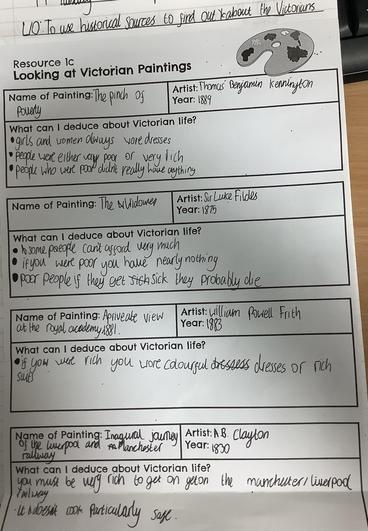 L/O: To use historical sources to find out about the Victorians
Resource 1c
Looking at Victorian Paintings
Name of Painting: The pinch of
Poverty
Artist: Thomas Benjamin Kennington
Year: 1889
What can I deduce about Victorian life?
• girls and women always wore dresses
• people were either very poor or very rich
• people who were poor didn't really have anything
Name of Painting: The Widower
Artist: Sir Luke Fildes
Year: 1875
What can I deduce about Victorian life?
• some people can't afford very much
• if you were poor you have nearly nothing
• poor people if they get sick they probably die
Name of Painting: A priveate view
at the royal academy 1881.
Artist: William Powell Frith
Year: 1883
What can I deduce about Victorian life?
• if you were rich you wore colourful dresses or rich
suits
Name of Painting: Inagural journey
of the liverpool and manchester
railway
Artist: A.B. Clayton
Year: 1830
What can I deduce about Victorian life?
you must be very rich to get on the manchester/liverpool
railway
It doesn't look particularly safe.